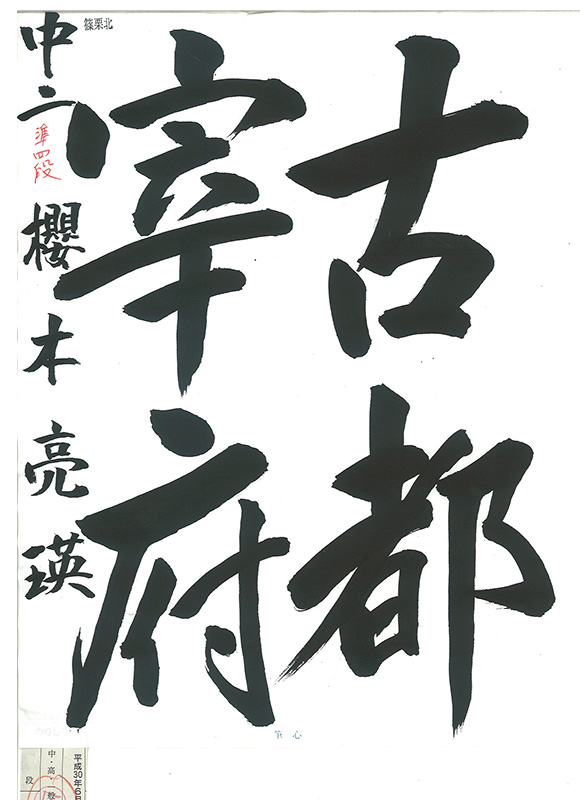 古都
宰府
篠栗北
中二
準四段
櫻木亮瑛
筆心
平成30年6月
中・高・一般
段